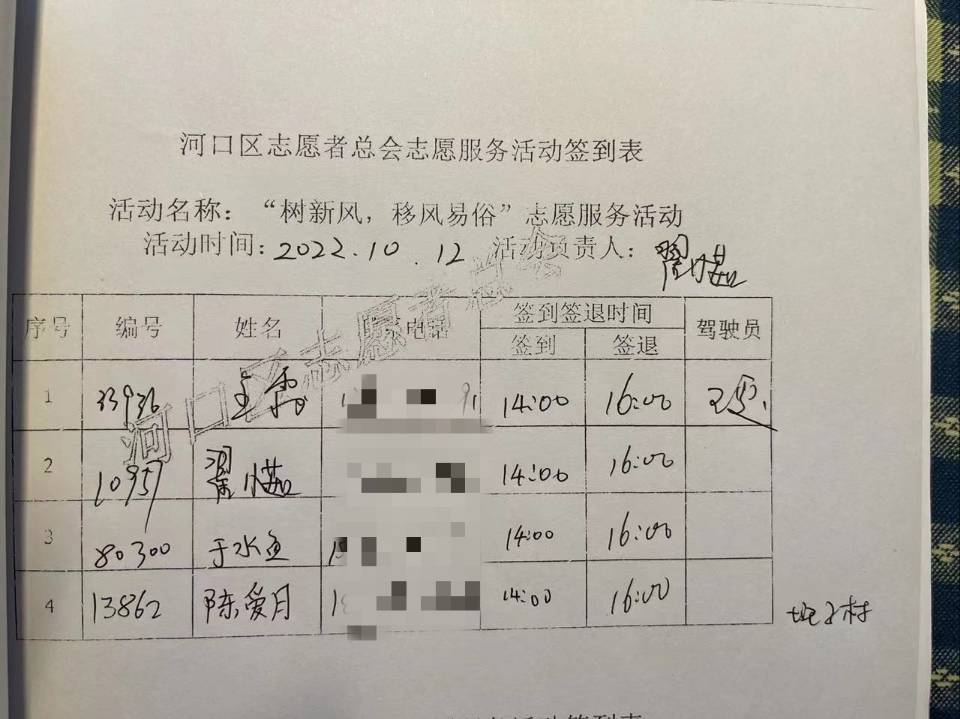 河口区志愿者总会志愿服务活动签到表
活动名称：“树新风，移风易俗”志愿服务活动
活动时间：2022.10.12 活动负责人：
序号 编号 姓名 电话 签到签退时间 驾驶员
签到 签退
1 33936 14:00 16:00
2 10957 14:00 16:00
3 80300 于水鱼 14:00 16:00
4 13862 陈爱月 14:00 16:00
河口区志愿者总会